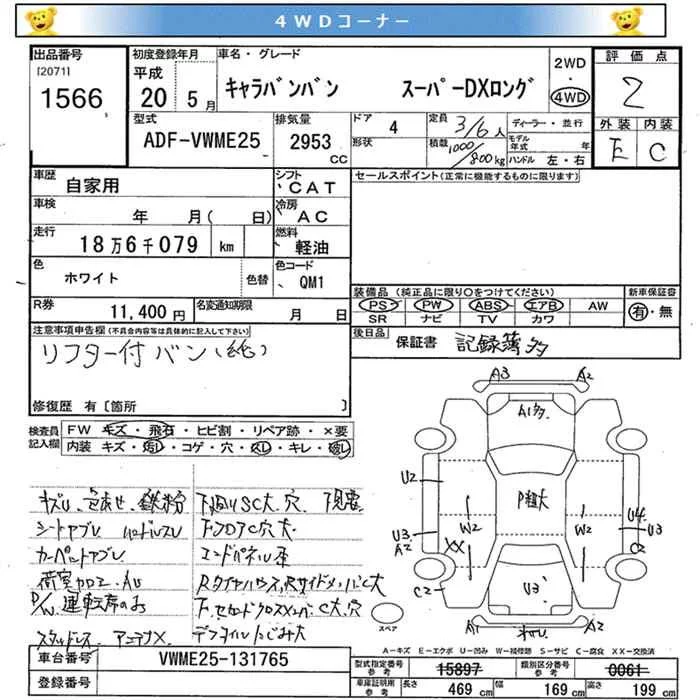 4WDコーナー
出品番号
[2071]
1566
初度登録年月
平成
20 5月
車名・グレード
キャラバンバン スーパーDXロング
2WD
・
4WD
評価点
2
型式
ADF-VWME25
排気量
2953
CC
ドア
4
形状
定員
3/6人
積載
1000/800kg
ディーラー・並行
モデル年式 年
ハンドル 左・右
外装 内装
E C
車歴
自家用
シフト
CAT
車検
年 月( 日)
冷房
AC
走行
18万6千079 km
燃料
軽油
色
ホワイト
色替
色コード
QM1
R券
11,400円
名変通知期限
月 日
セールスポイント(正常に機能するものに限ります)
装備品(純正品に限り○をつけてください)
PS PW ABS エアB AW
SR ナビ TV カワ
新車保証書
有・無
後日品
保証書 記録簿多
注意事項申告欄(不具合内容等は具体的に記入して下さい)
リフター付バン(純)
修復歴 有[箇所 ]
検査員記入欄
FW キズ・飛石・ヒビ割・リペア跡・×要
内装 キズ・汚レ・コゲ・穴・スレ・キレ・
キズリ、色あせ、鉄粉
シートヤブレ ハンドルスレ
カーペットヤブレ
運転席のみ
スタッドレス アンテナX
下廻りSC大、穴
下フロアC穴大
エンドパネル
A3 A2
A1多
U2
U3
A2
W2
XX
P粗大
W2
U4
U3
C2
C2
U3
A1 A2
スペア
A-キズ E-エクボ U-凹み W-補修跡 S-サビ C-腐食 XX-交換済
車台番号
VWME25-131765
登録番号
型式指定番号
参考
15897
類別区分番号
参考
0061
車庫証明用
参考
長さ
469 cm
幅
169 cm
高さ
199 cm